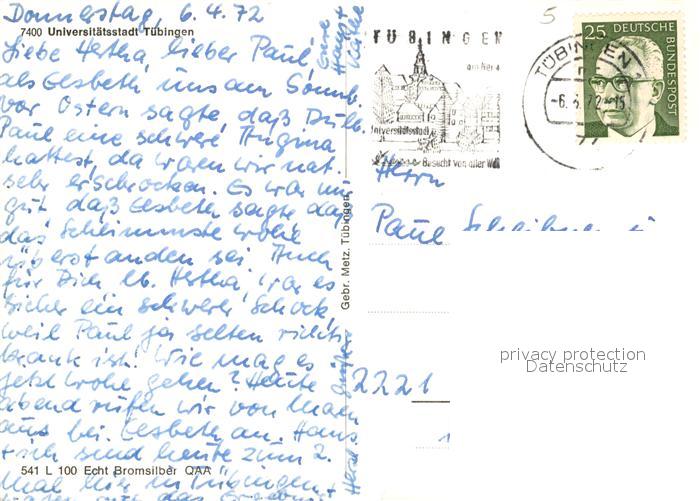 Donnerstag, 6.4.72
7400 Universitätsstadt Tübingen
Liebe Hertha, lieber Paul,
als Lisbeth uns am Sonnb.
vor Ostern sagte, daß Du lb.
Paul eine schwere Angina
hattest, da waren wir nat.
sehr erschrocken. Es war nur
gut daß Lisbeth sagte daß
das Schlimmste wohl
überstanden sei. Auch
für Dich lb. Hertha war es
sicher ein schwerer Schock,
weil Paul ja selten richtig
krank ist! Wie mag es
jetzt wohl gehen? Heute
abend rufen wir von
aus bei Lisbeth an. Hans
+ ich sind heute zum 2.
Mal hier in Tübingen +
541 L 100 Echt Bromsilber QAA
Eure
Hans +
Käthe
Gebr. Metz, Tübingen
TÜBINGEN
Universitätsstadt
Besucht von aller Welt
TÜBINGEN 1
-6.4.72-15
25 DEUTSCHE BUNDESPOST
5
Herrn
Paul
2221
privacy protection
Datenschutz